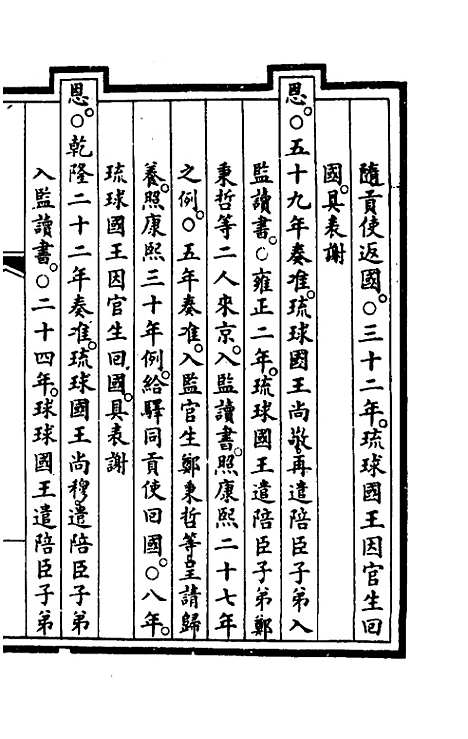 隨貢使返國。○三十二年。琉球國王因官生回
國。具表謝
恩。○五十九年奏准。琉球國王尚敬。再遣陪臣子弟入
監讀書。○雍正二年。琉球國王遣陪臣子弟鄭
秉哲等二人來京。入監讀書。照康熙二十七年
之例。○五年奏准。入監官生鄭秉哲等呈請歸
養。照康熙三十年例。給驛同貢使回國。○八年。
琉球國王因官生回國。具表謝
恩。○乾隆二十二年奏准。琉球國王尚穆。遣陪臣子弟
入監讀書。○二十四年。球球國王遣陪臣子弟